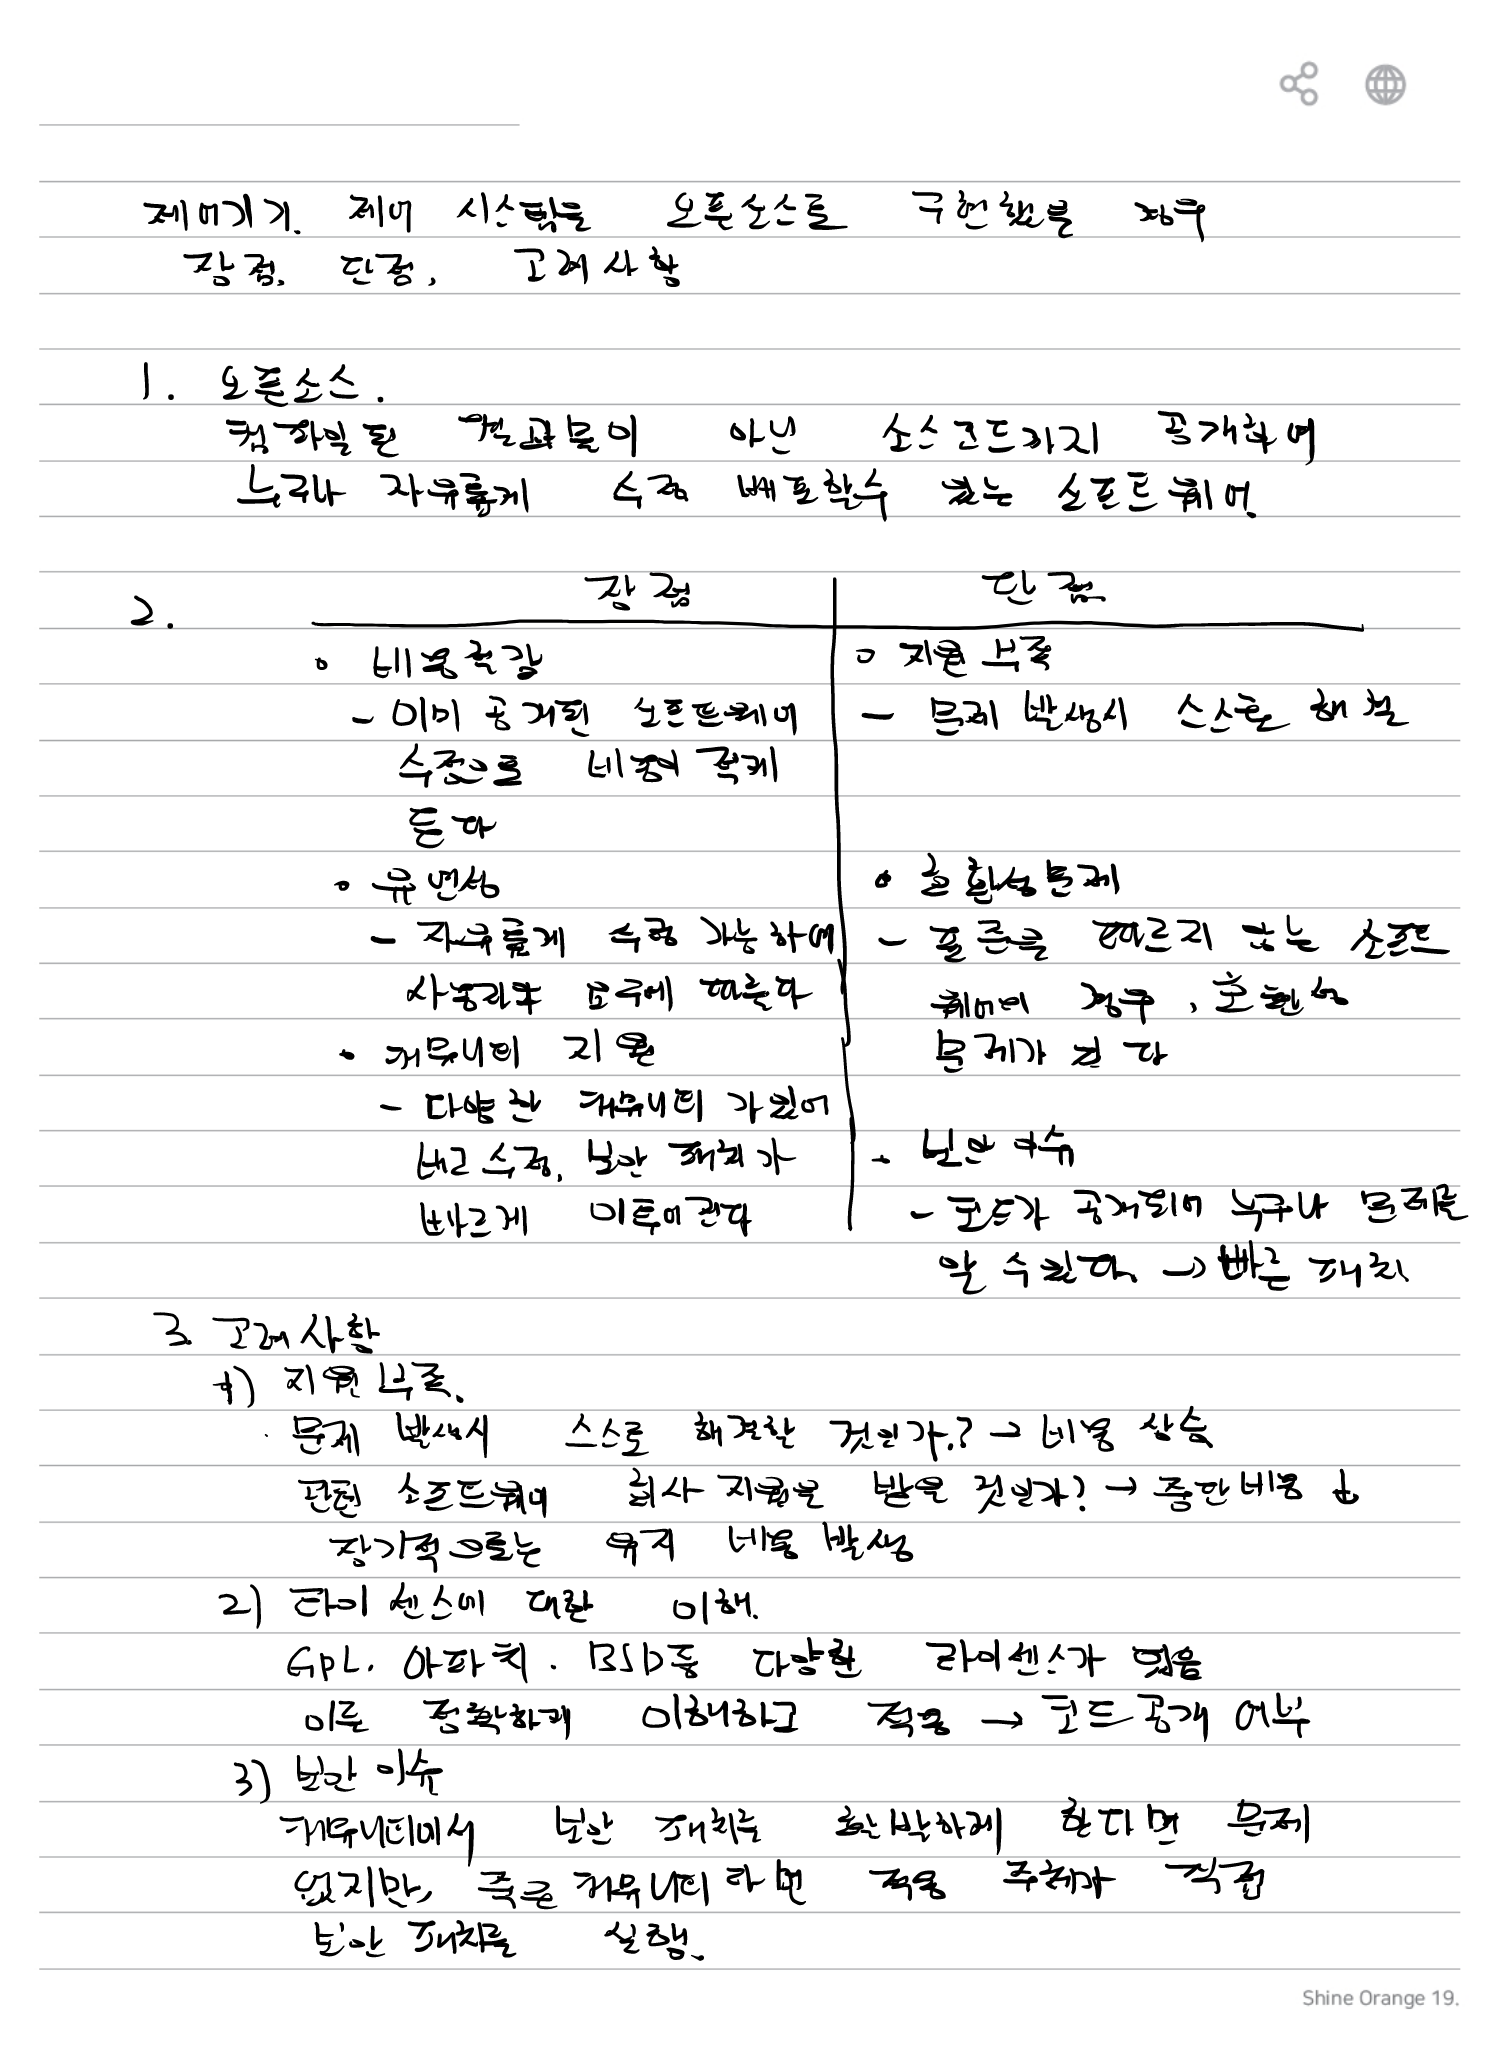 제어기기. 제어 시스템을 오픈소스로 구현했을 경우
장점. 단점. 고려사항
1. 오픈소스.
컴파일된 결과물이 아닌 소스코드까지 공개하여
누구나 자유롭게 수정 배포할수 있는 소프트웨어.
2. 장점 단점
• 비용절감
- 이미 공개된 소프트웨어
수정으로 비용이 적게
든다
• 유연성
- 자유롭게 수정 가능하여
사용자의 요구에 따른다
• 커뮤니티 지원
- 다양한 커뮤니티가 있어
버그수정, 보안 패치가
빠르게 이루어진다
• 지원 부족
- 문제 발생시 스스로 해결
• 호환성문제
- 표준을 따르지 않는 소프트
웨어의 경우, 호환성
문제가 있다
• 보안 이슈
- 코드가 공개되어 누구나 문제를
알 수 있다. → 빠른 패치.
3. 고려사항
1) 지원부족.
· 문제 발생시 스스로 해결할 것인가? → 비용 상승
관련 소프트웨어 회사 지원을 받을 것인가? → 중단비용 ↓
장기적으로는 유지 비용 발생
2) 라이센스에 대한 이해.
GPL. 아파치. BSD등 다양한 라이센스가 있음
이를 정확하게 이해하고 적용 → 코드공개 여부
3) 보안 이슈
커뮤니티에서 보안 패치를 활발하게 한다면 문제
없지만, 죽은 커뮤니티라면 적용 주체가 직접
보안 패치를 실행.
Shine Orange 19.